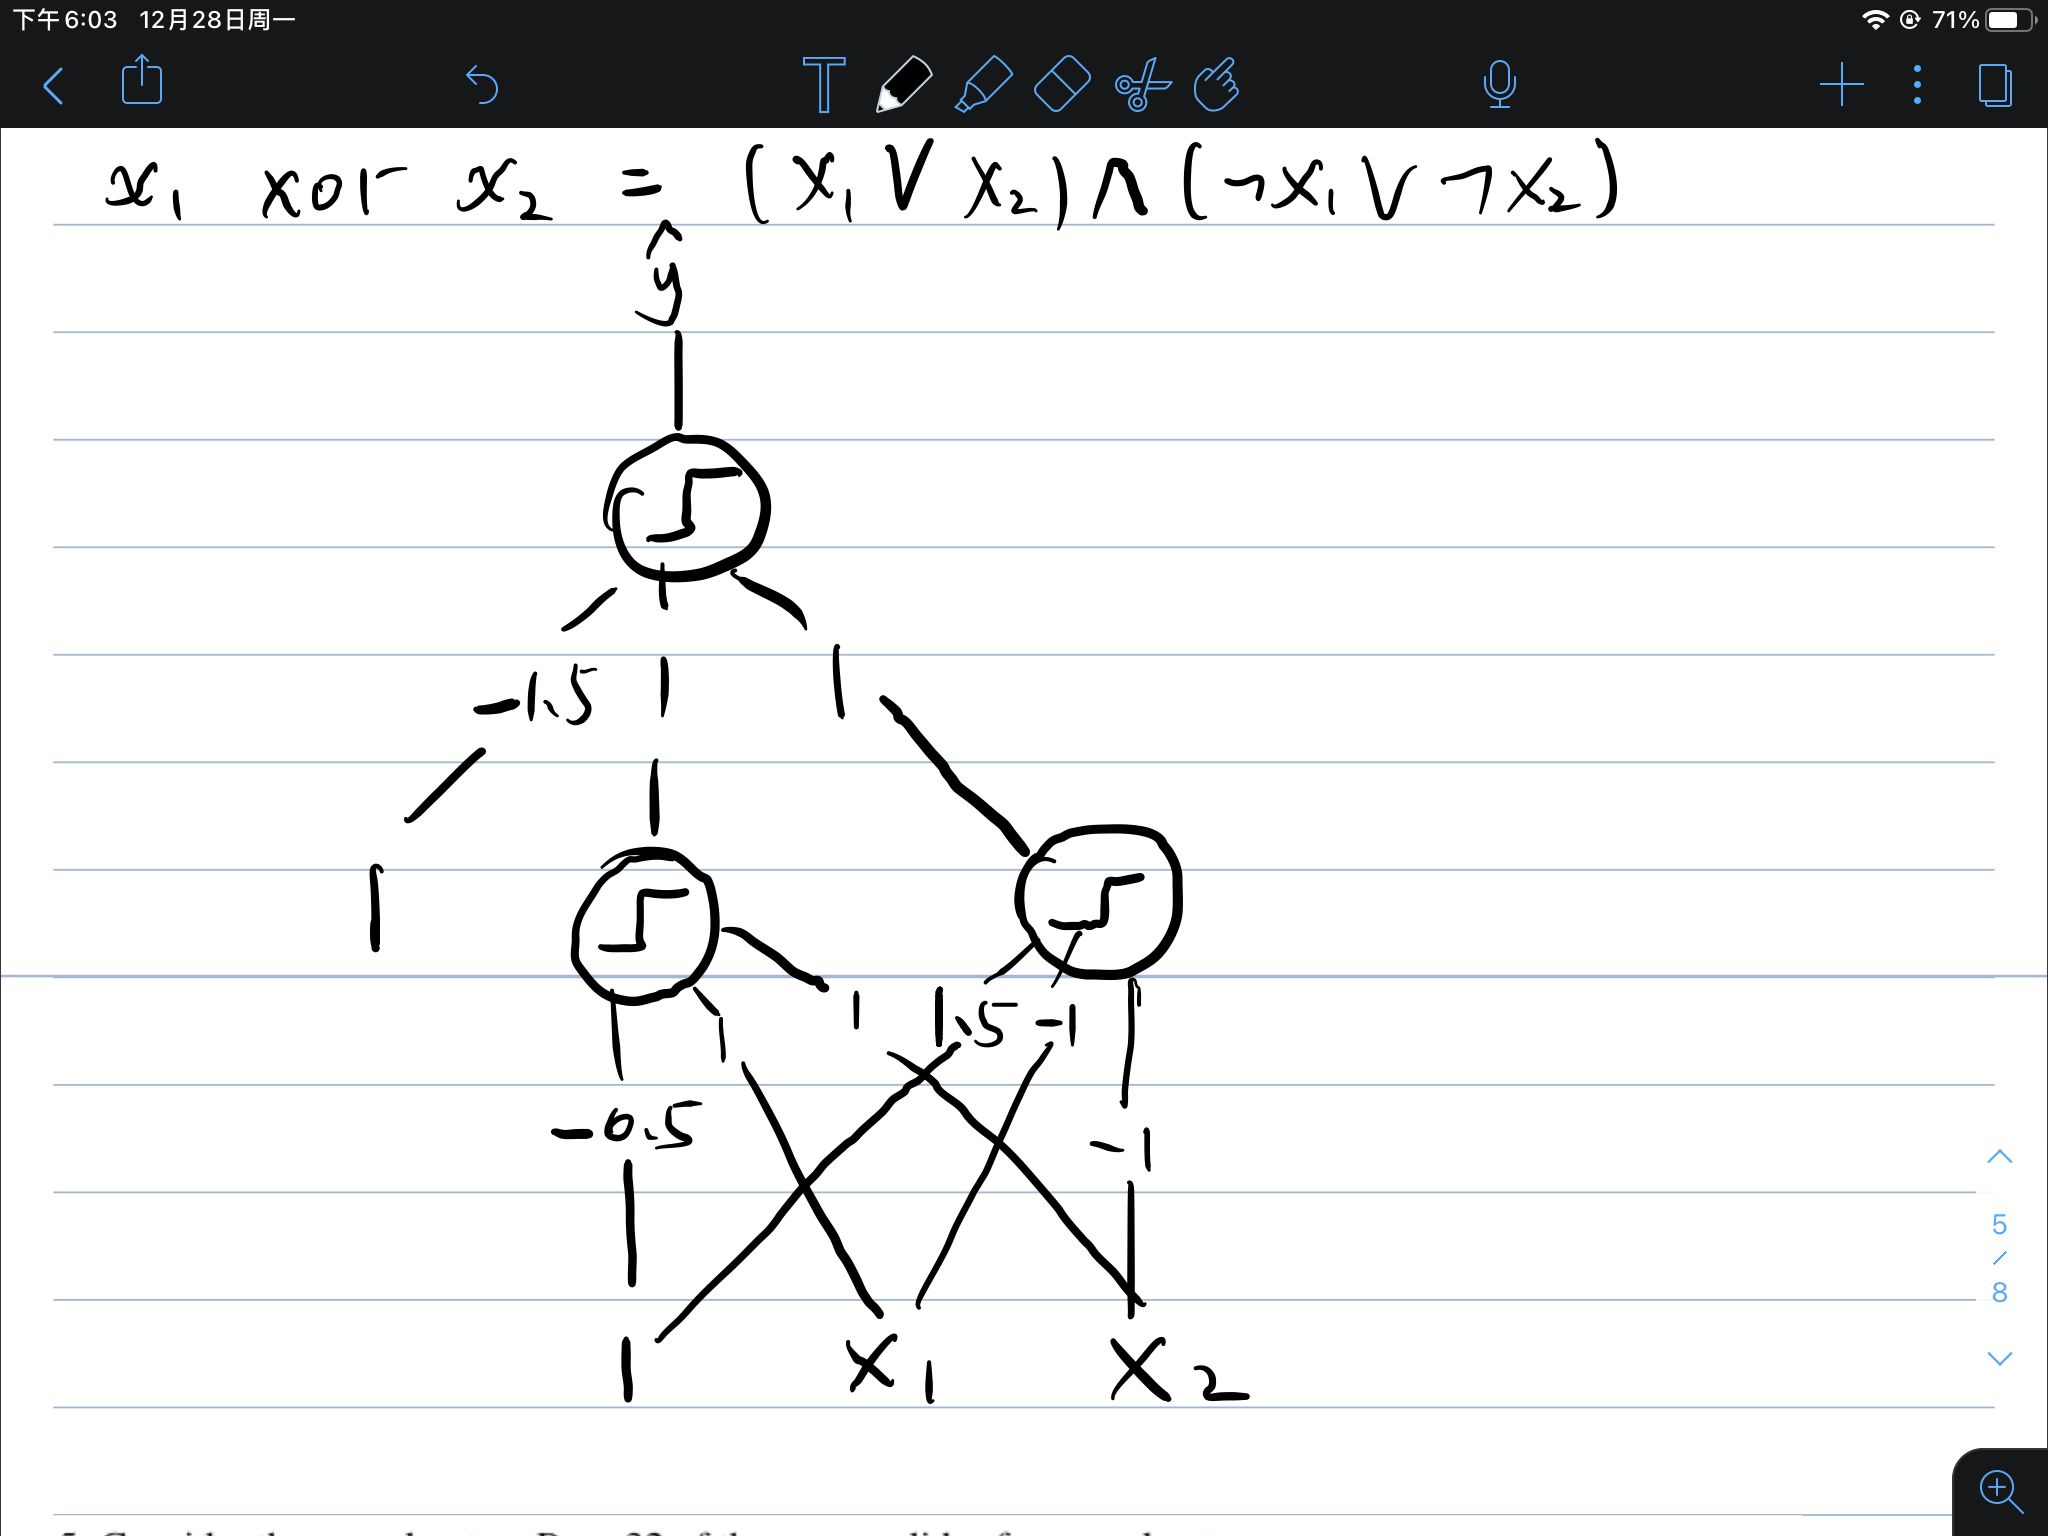 下午6:03 12月28日周一
71%
T
x₁ xor x₂ = (x₁ ∨ x₂) ∧ (¬x₁ ∨ ¬x₂)
ŷ
-1.5 1 1
1
1 1.5 -1
1
-0.5 -1
1 x₁ x₂
5
/
8